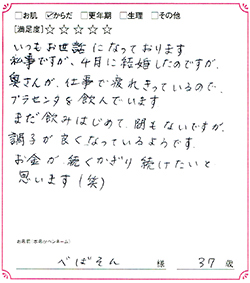 □お肌 ☑からだ □更年期 □生理 □その他
[満足度]☆☆☆☆☆
いつもお世話になっております
私事ですが、4月に結婚したのですが、
奥さんが、仕事で疲れきっているので、
プラセンタを飲んでいます
まだ飲みはじめて、間もないですが、
調子が良くなっているようです。
お金が、続くかぎり続けたいと
思います(笑)
お名前(本名やペンネーム)
べばそん 様 37歳